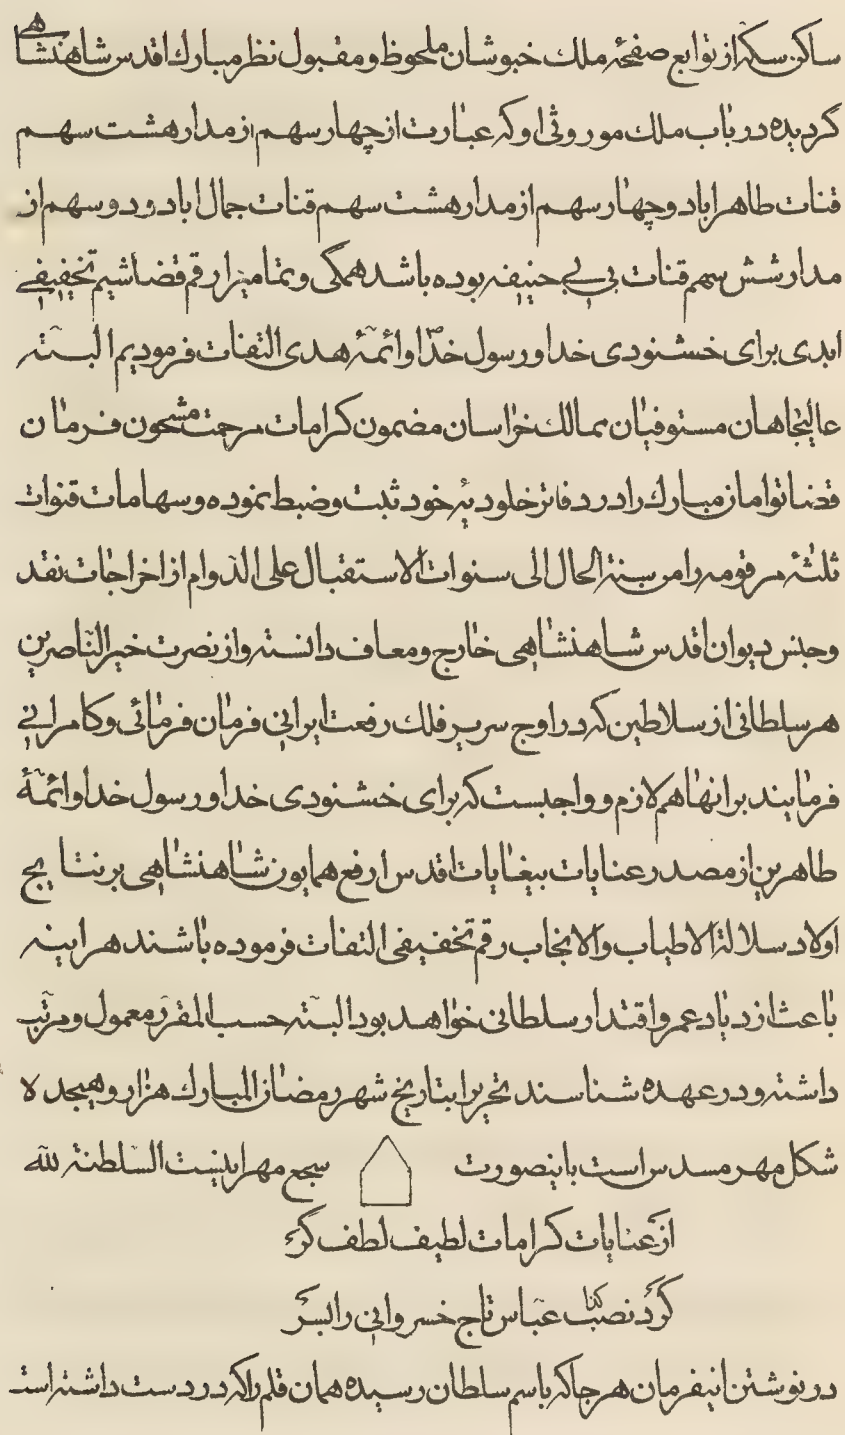 ساکن سکه از توابع صفحهٔ ملک خبوشان ملحوظ و مقبول نظر مبارک اقدس شاهنشاهی
گردیده در باب ملک موروثی او که عبارت از چهار سهم از مدار هشت سهم
قنات طاهراباد و چهار سهم از مدار هشت سهم قنات جمال اباد و دو سهم از
مدار شش سهم قنات بی بی حنیفه بوده باشد همگی و تمامیرا رقم قضاشیم تخفیفی
ابدی برای خشنودی خدا و رسول خدا و ائمهٔ هدی التفات فرمودیم البته
عالیجاهان مستوفیان ممالک خراسان مضمون کرامات مرحمت مشحون فرمان
قضا توامان مبارک را در دفاتر خلودیهٔ خود ثبت و ضبط نموده و سهامات قنوات
ثلثهٔ مرقومه را من سنة الحال الی سنوات الاستقبال علی الدوام از اخراجات نقد
و جنس دیوان اقدس شاهنشاهی خارج و معاف دانسته و از نصرت خیر الناصرین
هر سلطانی از سلاطین که در اوج سریر فلک رفعت ایرانی فرمان فرمائی و کامرانی
فرمایند بر انها هم لازم و واجبست که برای خشنودی خدا و رسول خدا و ائمهٔ
طاهرین از مصدر عنایات بیغایات اقدس ارفع همایون شاهنشاهی بر نتایج
اولاد سلالة الاطیاب والانجاب رقم تخفیفی التفات فرموده باشند هراینه
باعث ازدیاد عمر و اقتدار سلطانی خواهد بود البته حسب المقرر معمول و مرتب
داشته و در عهده شناسند تحریرا بتاریخ شهر رمضان المبارک هزار و هیجده
شکل مهر مسدس است باینصورت سجع مهر اینست السلطنة لله
از عنایات کرامات لطیف لطف گر
کرد نصب عباس تاج خسروانی را بسر
در نوشتن اینفرمان هر جا که باسم سلطان رسیده همان قلم را که در دست داشته است